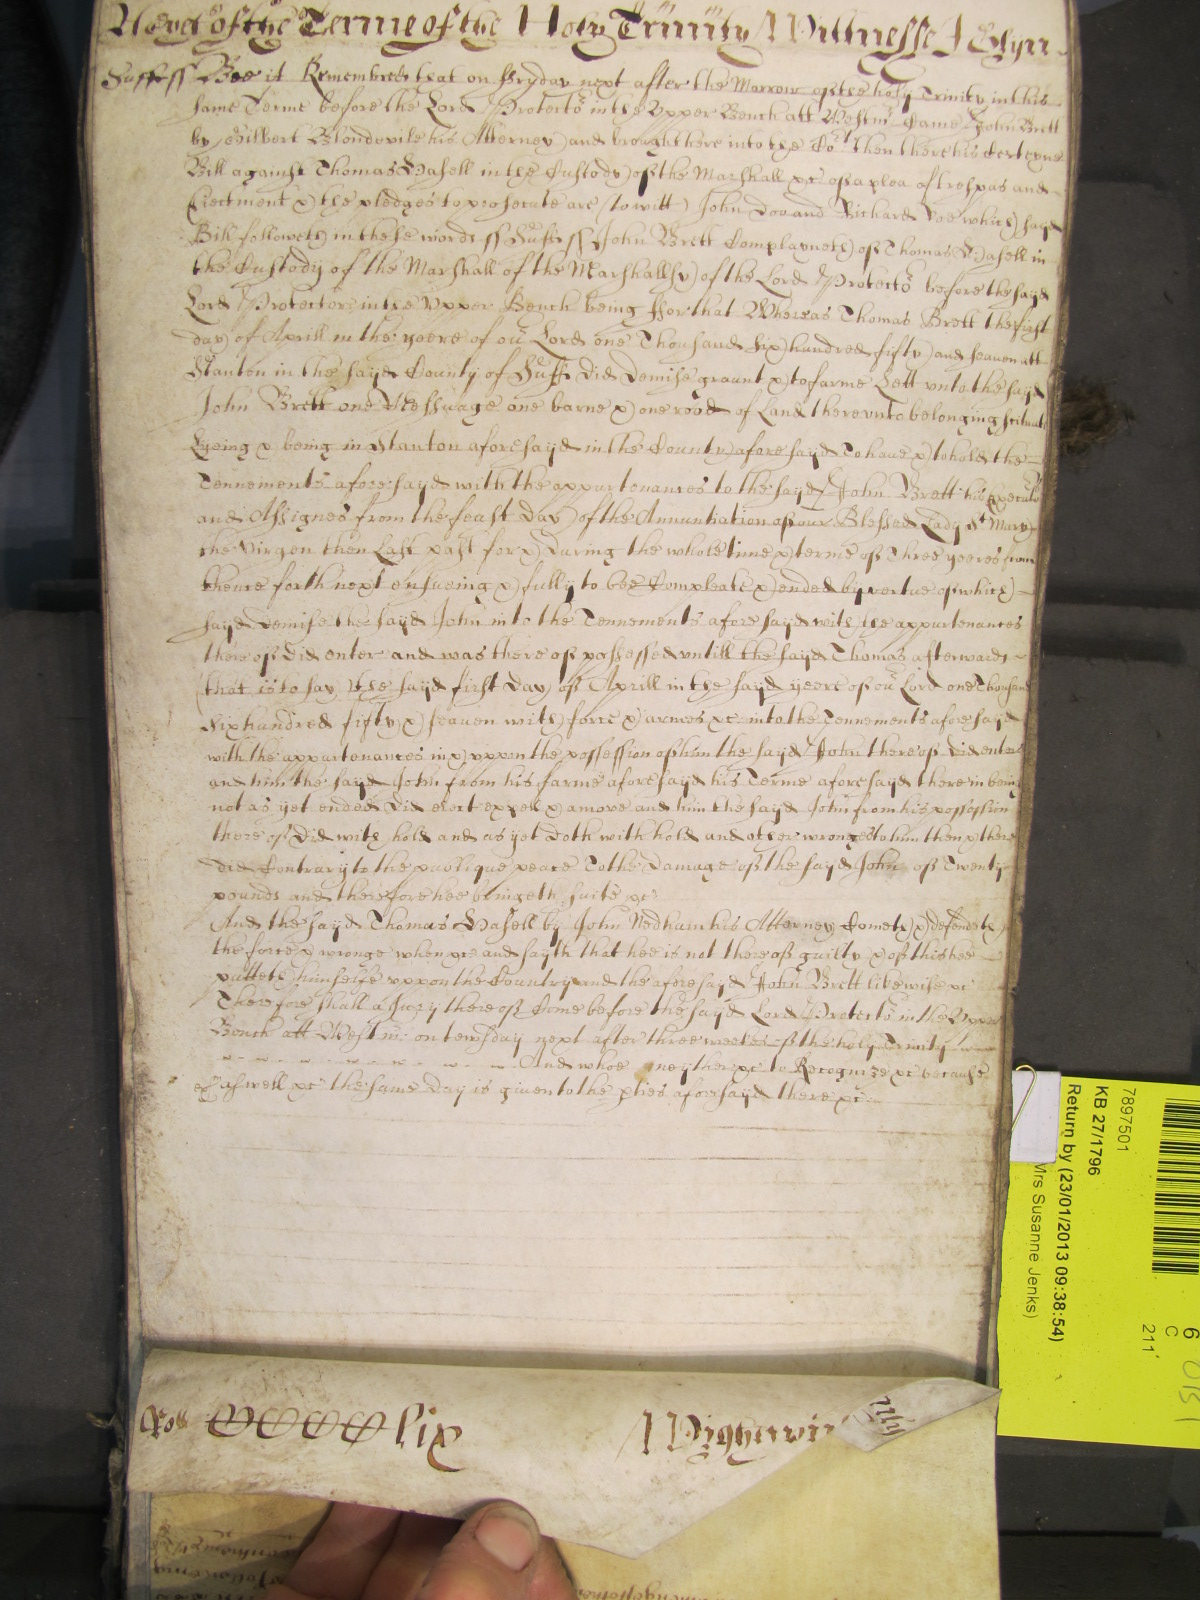 Yet of the Terme of the Holy Trinity Wittnesse J Glyn
Suff ss Bee it Remembred that on ffryday next after the Morrow of the holy Trinity in this
same Terme before the Lord Protector in the Upper Bench att Westmr Came John Brett
by Gilbert Blondevile his Attorney and brought here into the Cort then there his Certeyne
Bill against Thomas Hasell in the Custody of the Marshall &c of a plea of trespas and
Ejectment & the pledges to prosecute are (to witt) John Doo and Richard Roe which sayd
Bill followeth in these words ss Suff ss John Brett Complayneth of Thomas Hasell in
the Custody of the Marshall of the Marshallsy of the Lord Protector before the sayd
Lord Protector in the Upper Bench being ffor that Whereas Thomas Brett the first
day of Aprill in the yeere of our Lord one Thousand six hundred fifty and seaven att
Stanton in the sayd County of Suff did demise graunt & to farme Lett unto the sayd
John Brett one Messuage one barne & one rood of Land thereunto belonging scituate
Lyeing & being in Stanton aforesayd in the County aforesayd To have & to hold the
Tennements aforesayd with the appurtenances to the sayd John Brett his Executors
and Assignes from the feast day of the Annuntiation of our Blessed Lady St Mary
the Virgen then Last past for & during the whole time & terme of Three yeeres from
thence forth next ensueing & fully to bee Compleate & ended by vertue of which
sayd demise the sayd John into the Tennements aforesayd with the appurtenances
thereof did enter and was thereof possessed untill the sayd Thomas afterwards
(that is to say) the sayd first day of Aprill in the sayd yeere of our Lord one Thousand
Six hundred fifty & seaven with force & armes &c into the Tennements aforesayd
with the appurtenances in & uppon the possession of him the sayd John thereof did enter
and him the sayd John from his farme aforesayd his Terme aforesayd therein being
not as yet ended did eiect expell & amove and him the sayd John from his possession
thereof did with hold and as yet doth with hold and other wronges to him then & there
did Contrary to the publique peace To the damage of the sayd John of Twenty
pounds and therefore hee bringeth suite &c
And the sayd Thomas Hasell by John Nedham his Attorney Cometh & defendeth
the force & wronge when &c and sayth that hee is not thereof guilty & of this hee
putteth himselfe uppon the Country and the aforesayd John Brett likewise &c
Therefore shall a Jury thereof Come before the sayd Lord Protector in the Upper
Bench att Westmr on tewsday next after three weekes of the holy Trinity
And whoe neyther &c to Recognize &c because
aswell &c the same day is given to the pties aforesayd there &c
Wightwick
7897501
KB 27/1796
Return by (23/01/2013 09:38:54)
Mrs Susanne Jenks)
6
C
211